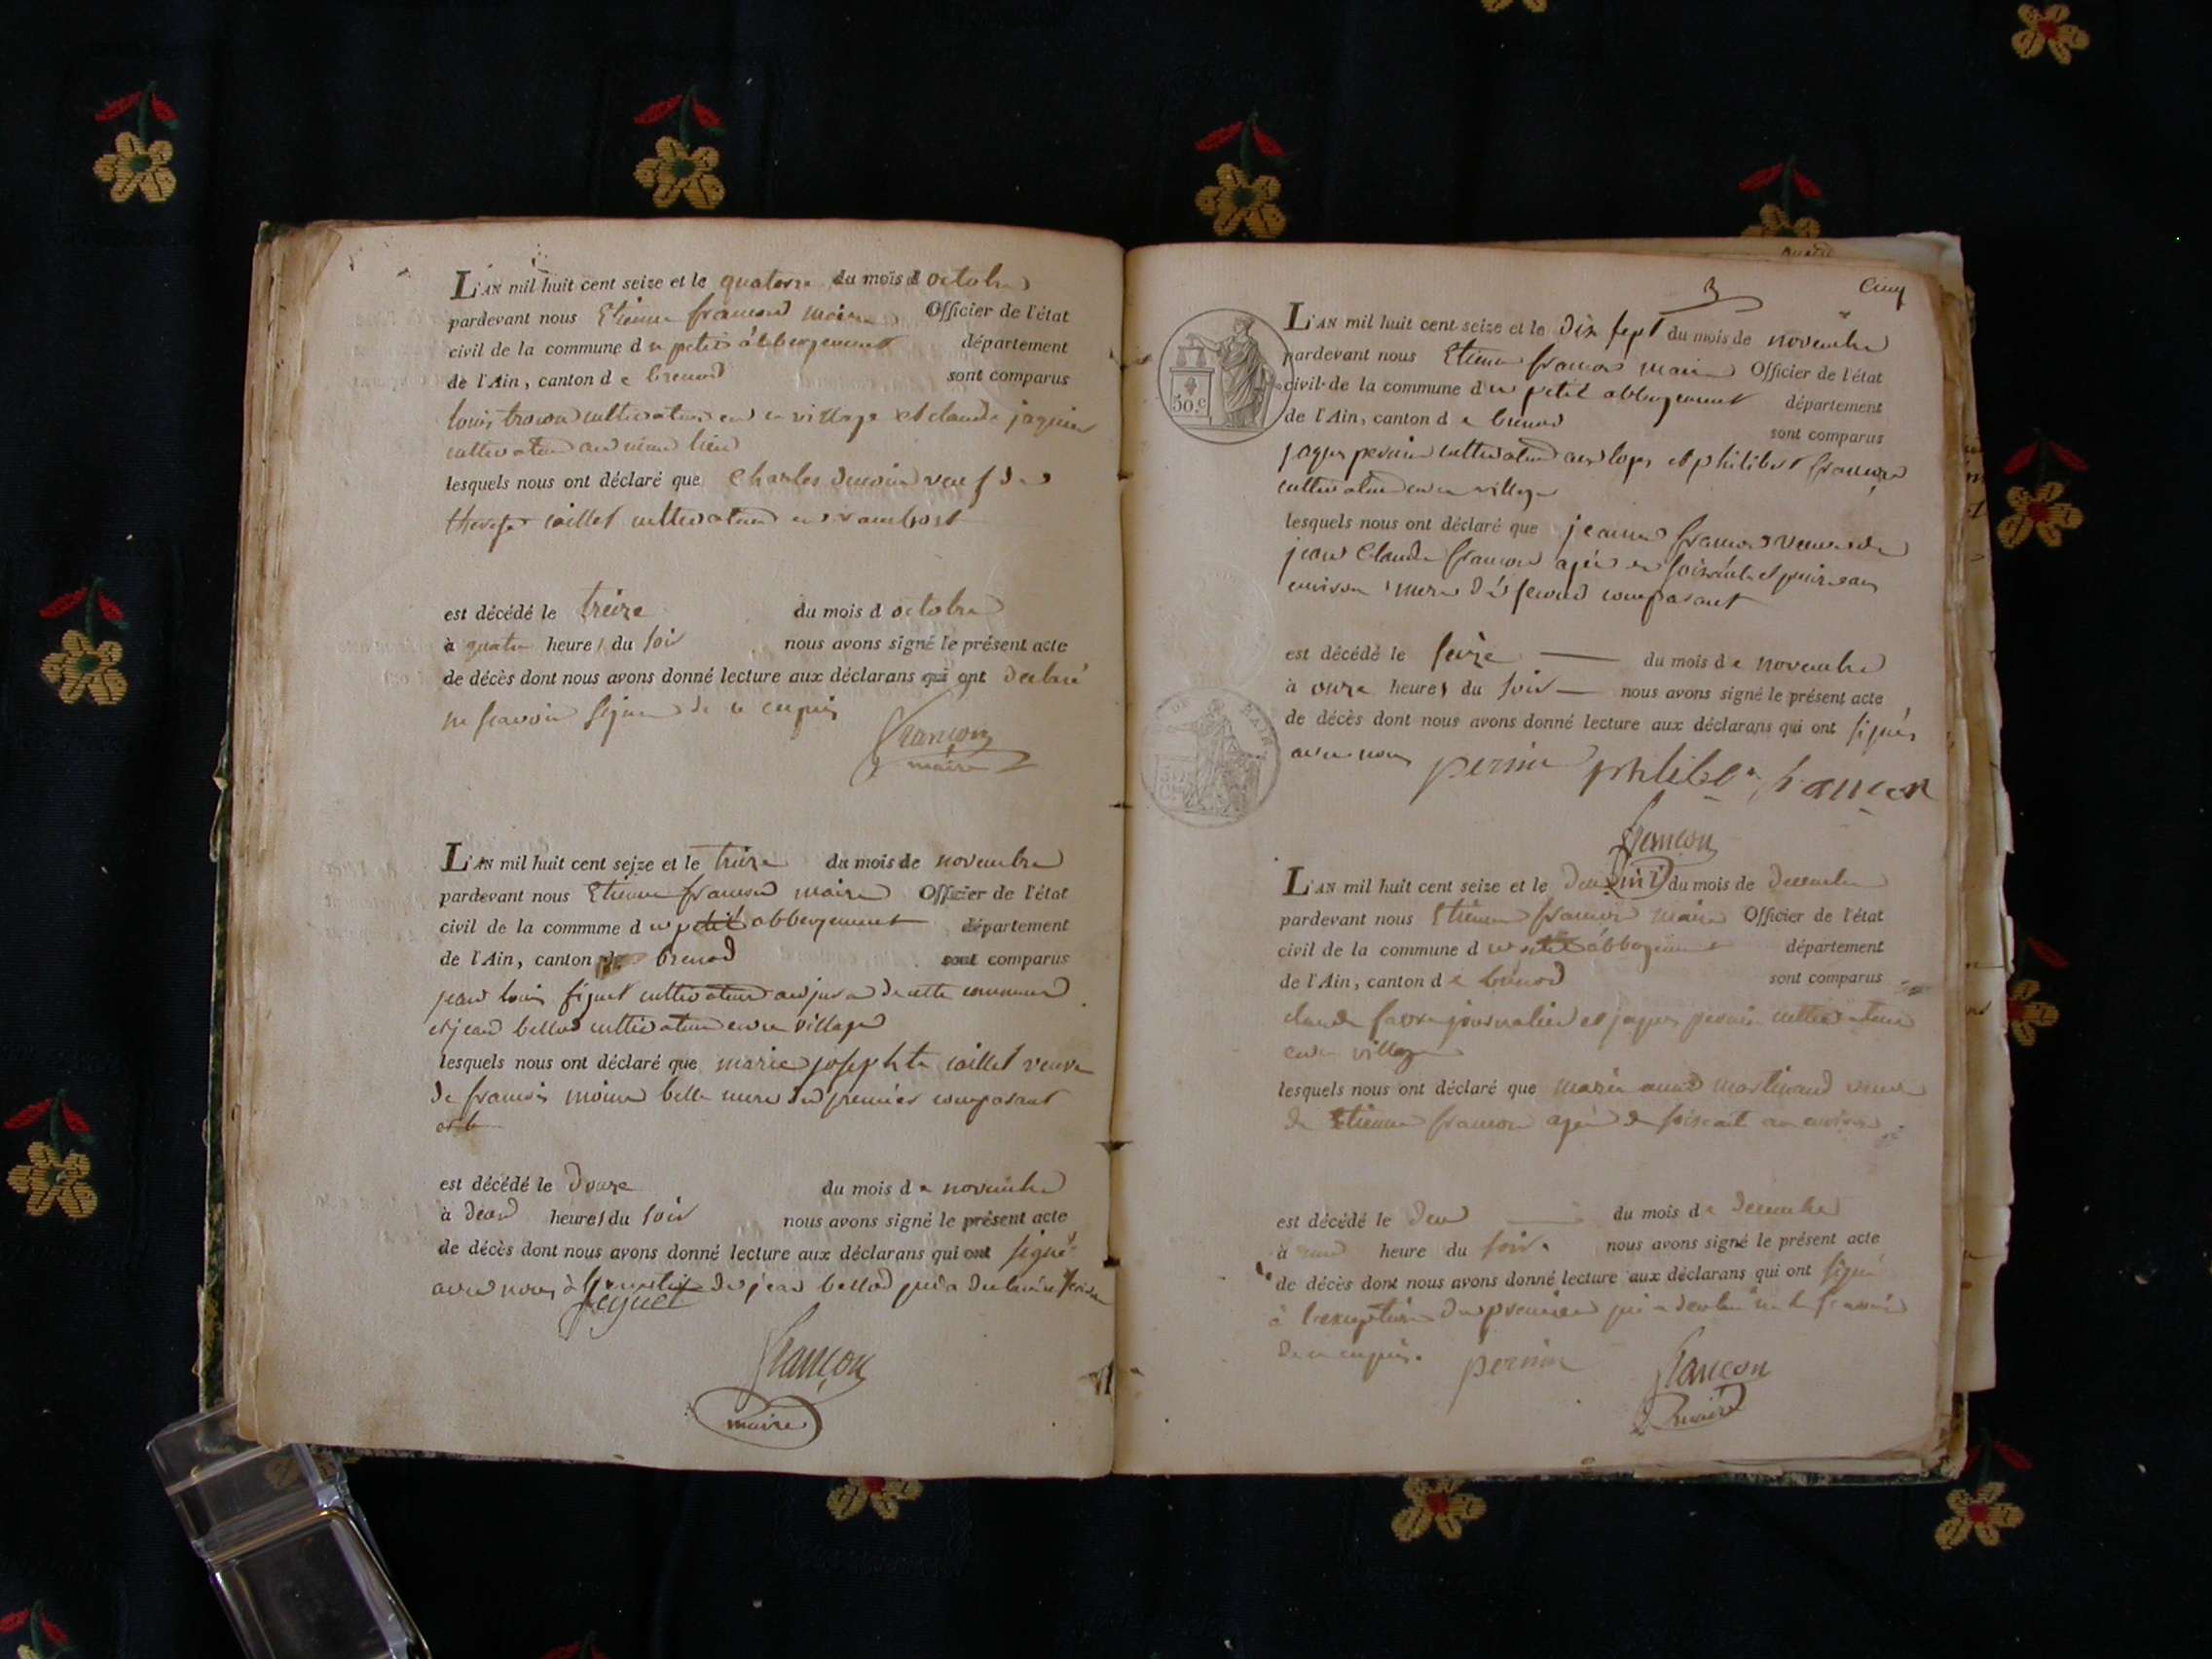 L'AN mil huit cent seize et le quatorze du mois d octobre
pardevant nous Etienne françon maire Officier de l'état
civil de la commune d u petit abbergement département
de l'Ain, canton d e brenod sont comparus
louis cultivateur en ce village et claude jaquier
cultivateur au même lieu
lesquels nous ont déclaré que Charles veuf de
therese caillet cultivateur en
est décédé le treize du mois d octobre
à quatre heures du soir nous avons signé le présent acte
de décès dont nous avons donné lecture aux déclarans qui ont declaré
ne scavoir signer de ce enquis
françon
maire
L'AN mil huit cent seize et le treize du mois de novembre
pardevant nous Etienne françon maire Officier de l'état
civil de la commune d u petit abbergement département
de l'Ain, canton de brenod sont comparus
jean louis cultivateur au de cette commune
et jean ballod cultivateur en ce village
lesquels nous ont déclaré que marie josephte caillet veuve
de francois moine belle mere du premier comparant
est décédé le douze du mois d e novembre
à deux heures du soir nous avons signé le présent acte
de décès dont nous avons donné lecture aux déclarans qui ont signé
avec nous à de jean ballod qui a declaré
françon
maire
3
Cinq
50.c
L'AN mil huit cent seize et le dix sept du mois de novembre
pardevant nous Etienne françon maire Officier de l'état
civil de la commune d u petit abbergement département
de l'Ain, canton d e brenod sont comparus
jaques perrin cultivateur aux loges et philibert françon
cultivateur en ce village
lesquels nous ont déclaré que jeanne françon veuve de
jean Claude françon agée de soixante et quinze ans
environ mere du second comparant
est décédé le seize du mois d e novembre
à onze heures du soir nous avons signé le présent acte
de décès dont nous avons donné lecture aux déclarans qui ont signés
avec nous perrin philibert françon
françon
L'AN mil huit cent seize et le deux du mois de decembre
pardevant nous Etienne françon maire Officier de l'état
civil de la commune d u petit abbergement département
de l'Ain, canton d e brenod sont comparus
claude favre journalier et jaques perrin cultivateur
en ce village
lesquels nous ont déclaré que marie anne martinand veuve
de Etienne françon agée de soixante ans environ
est décédé le deux du mois d e decembre
à heure du soir nous avons signé le présent acte
de décès dont nous avons donné lecture aux déclarans qui ont signé
à l'exeption du premier qui a declaré ne le scavoir
de ce enquis. perrin françon
maire